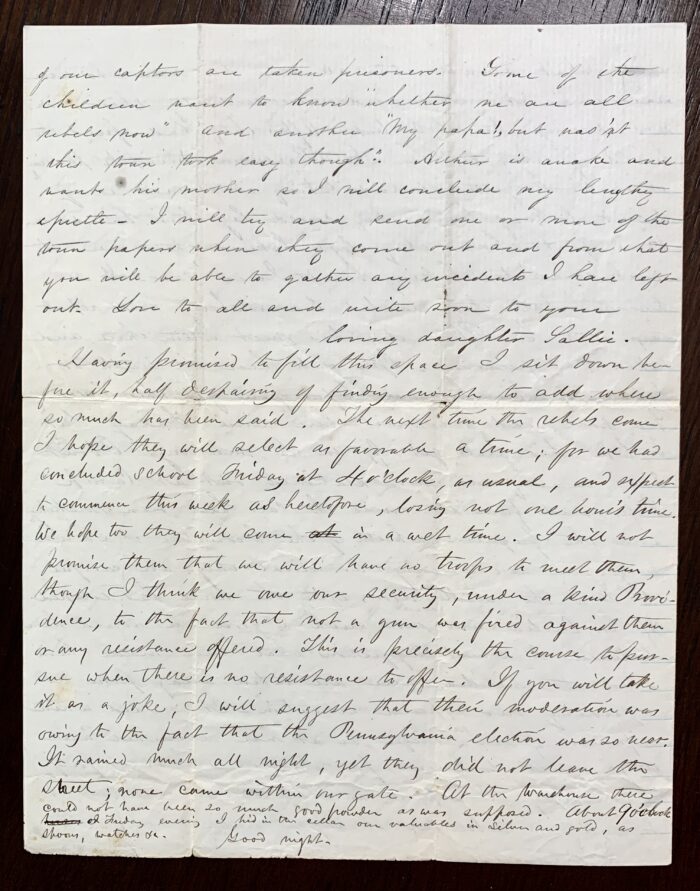 of our captors are taken prisoners. Some of the
children want to know "whether we are all
rebels now" and another "My papa!, but was'nt
this town took easy though". Arthur is awake and
wants his mother so I will conclude my lengthy
epistle - I will try and send one or more of the
town papers when they come out and from that
you will be able to gather any incidents I have left
out. Love to all and write soon to your
loving daughter Sallie.
Having promised to fill this space I sit down be-
fore it, half despairing of finding enough to add where
so much has been said. The next time the rebels come
I hope they will select as favorable a time; for we had
concluded school Friday at 4 o'clock, as usual, and expect
to commence this week as heretofore, losing not one hour's time.
We hope too they will come at in a wet time. I will not
promise them that we will have no troops to meet them,
though I think we owe our security, under a kind Provi-
dence, to the fact that not a gun was fired against them
or any resistance offered. This is precisely the course to pur-
sue when there is no resistance to offer. If you will take
it as a joke, I will suggest that their moderation was
owing to the fact that the Pennsylvania election was so near.
It rained much all night, yet they did not leave the
street; none came within our gate. At the Warehouse there
could not have been so much good powder as was supposed. About 9 o'clock
Friday evening I hid in the cellar our valuables in silver and gold, as
spoons, watches &c. Good night.